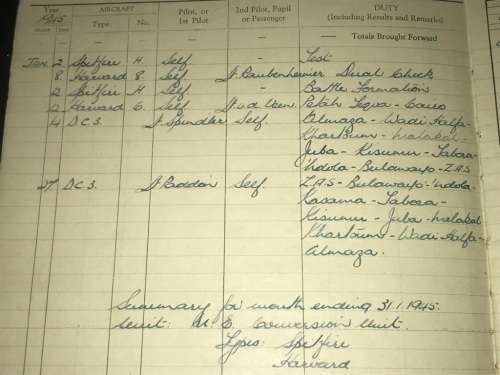 Year AIRCRAFT Pilot, or 2nd Pilot, Pupil DUTY
1945 Type No. 1st Pilot or Passenger (Including Results and Remarks)
— — — — — — Totals Brought Forward
Jan 2 Spitfire H. Self. - Test
8 Harvard 8. Self. Lt Raubenheimer Dual Check
2 Spitfire H Self. - Battle Formation
2 Harvard 6. Self. Lt v.d. Petah Tiqva - Cairo
4 D.C.3. Lt Spindler Self. Almaza - Wadi Halfa -
Khartoum - Malakal -
Juba - Kisumu - Tabora -
Ndola - Bulawayo - Z.A.S
27. D.C.3. Lt Paddon Self. Z.A.S - Bulawayo - Ndola -
Kasama - Tabora -
Kisumu - Juba - Malakal
Khartoum - Wadi Halfa -
Almaza.
Summary for month ending 31.1.1945.
Unit: M.E. Conversion Unit.
Types: Spitfire
Harvard